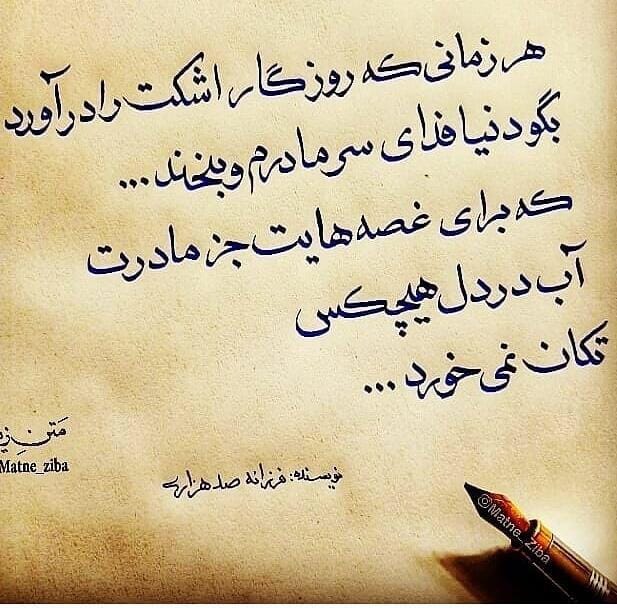 هر زمانی که روزگار اشکت را درآورد
بگو دنیا فدای سر مادرم و بخند ...
که برای غصه هایت جز مادرت
آب در دل هیچکس
تکان نمی خورد ...
متن
Matne_ziba
نویسنده: فرزانه صدهزاری
@Matne_Ziba